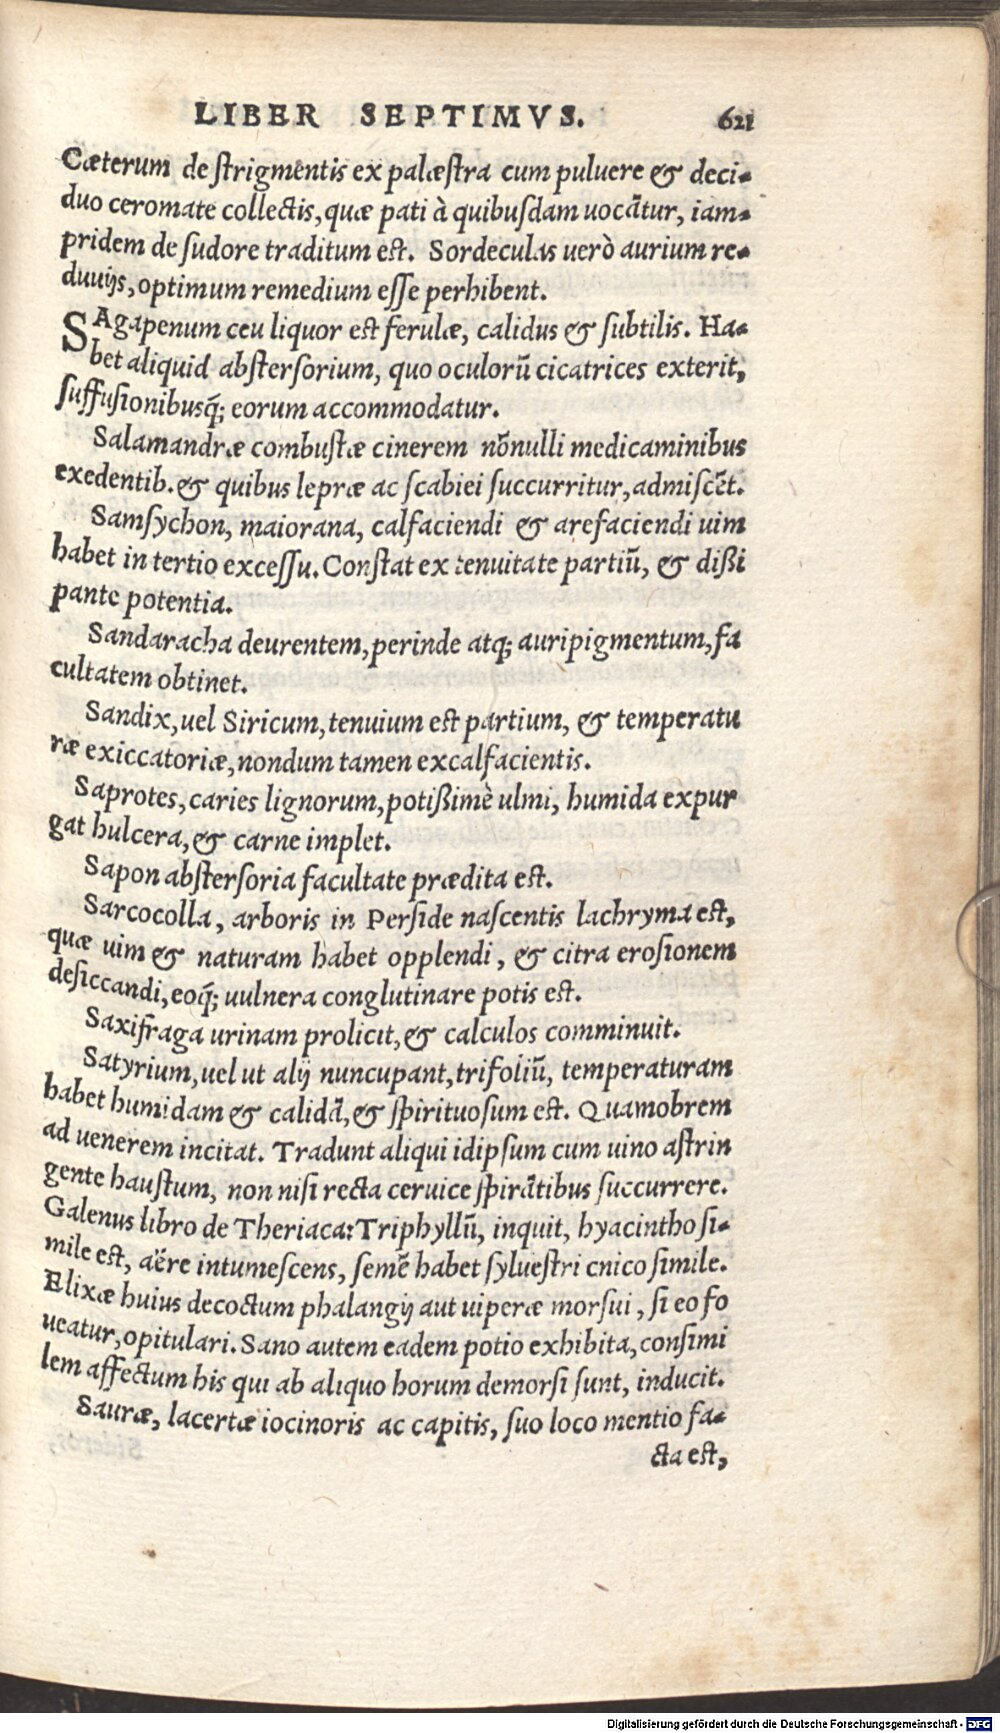 LIBER SEPTIMVS. 621
Cæterum de strigmentis ex palæstra cum puluere & deci-
duo ceromate collectis, quæ pati à quibusdam uocãtur, iam-
pridem de sudore traditum est. Sordeculas verò aurium re-
duuijs, optimum remedium esse perhibent.
SAgapenum ceu liquor est ferulæ, calidus & subtilis. Ha-
bet aliquid abstersorium, quo oculorũ cicatrices exterit,
suffusionibusq́; eorum accommodatur.
Salamandræ combustæ cinerem nõnulli medicaminibus
exedentib. & quibus lepræ ac scabiei succurritur, admiscẽt.
Samsychon, maiorana, calfaciendi & arefaciendi uim
habet in tertio excessu. Constat ex tenuitate partiũ, & dißi
pante potentia.
Sandaracha deurentem, perinde atq; auripigmentum, fa
cultatem obtinet.
Sandix, uel Siricum, tenuium est partium, & temperatu
ræ exiccatoriæ, nondum tamen excalfacientis.
Saprotes, caries lignorum, potißimè ulmi, humida expur
gat hulcera, & carne implet.
Sapon abstersoria facultate prædita est.
Sarcocolla, arboris in Perside nascentis lachryma est,
quæ uim & naturam habet opplendi, & citra erosionem
desiccandi, eoq́; uulnera conglutinare potis est.
Saxifraga urinam prolicit, & calculos comminuit.
Satyrium, uel ut alij nuncupant, trifoliũ, temperaturam
habet humidam & calidã, & spirituosum est. Quamobrem
ad uenerem incitat. Tradunt aliqui idipsum cum uino astrin
gente haustum, non nisi recta ceruice spirãtibus succurrere.
Galenus libro de Theriaca: Triphyllũ, inquit, hyacintho si-
mile est, aëre intumescens, semẽ habet syluestri cnico simile.
Elixæ huius decoctum phalangij aut uiperæ morsui, si eo fo
ueatur, opitulari. Sano autem eadem potio exhibita, consimi
lem affectum his qui ab aliquo horum demorsi sunt, inducit.
Sauræ, lacertæ iocinoris ac capitis, suo loco mentio fa-
cta est,
Digitalisierung gefördert durch die Deutsche Forschungsgemeinschaft - DFG